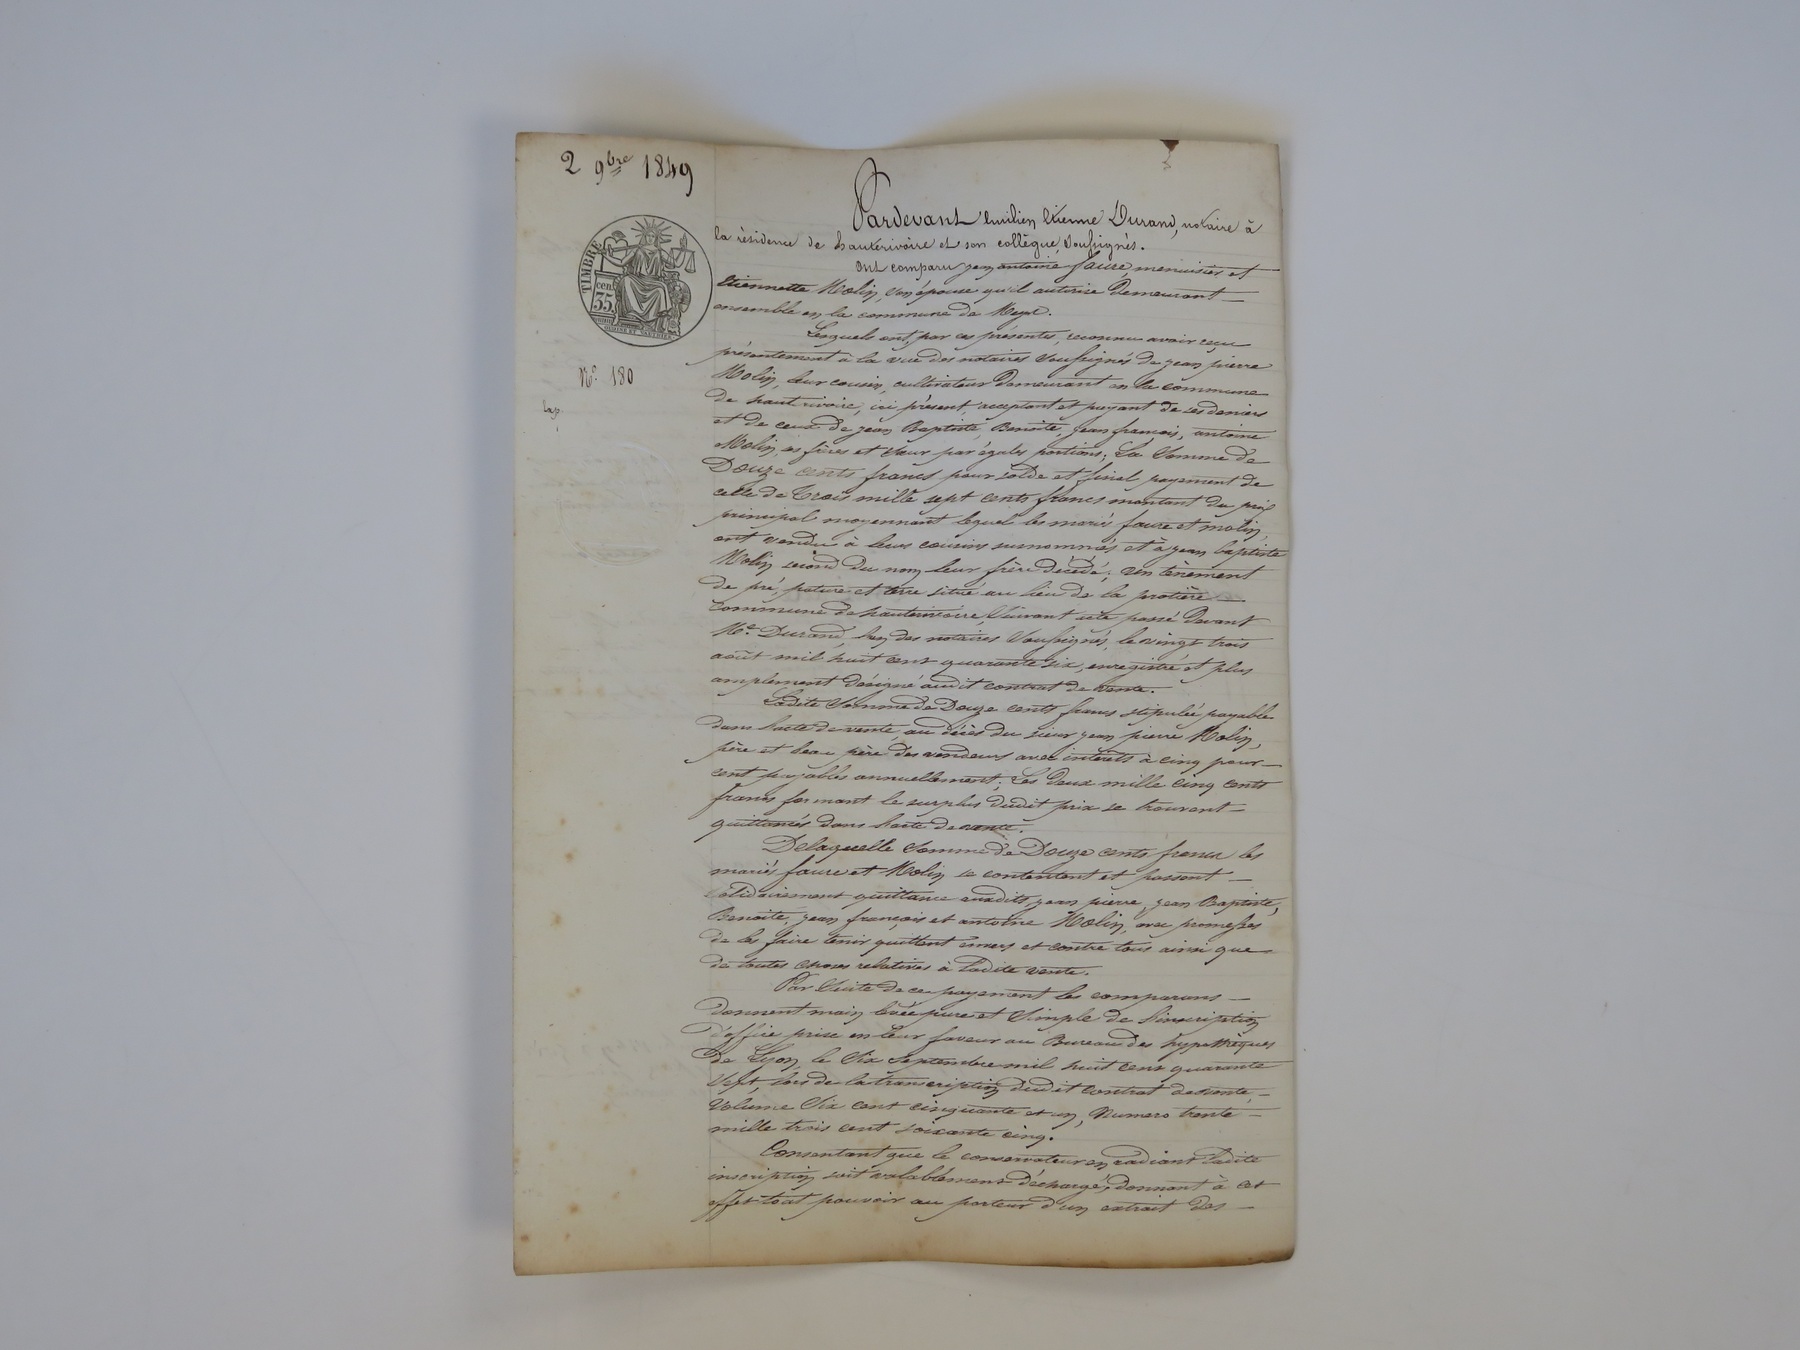 2 9bre 1849
TIMBRE
cen.
35.
N° 180
Pardevant Emilien Etienne Durand, notaire à
la résidence de hauterivoire et son collègue, soussignés.
Ont comparu jean antoine faure, menuisier et
Etiennette Molin, son épouse qu'il autorise demeurant
ensemble en la commune de Meys.
Lesquels ont, par ces présentes, reconnu avoir reçu
présentement à la vue des notaires soussignés de jean pierre
Molin, leur cousin, cultivateur demeurant en la commune
de hauterivoire, ici présent, acceptant et payant de ses deniers
et de ceux de jean Baptiste, Benoite, jean françois, antoine
Molin, ses frères et sœur par égales portions; La Somme de
Douze cents francs pour solde et final payement de
celle de Trois mille sept cents francs montant du prix
principal moyennant lequel les mariés faure et molin,
ont vendu à leurs cousins surnommés et à jean baptiste
Molin second du nom leur frère décédé; un tènement
de pré, pature et terre situé au lieu de la
commune de hauterivoire, Suivant acte passé Devant
Me Durand, l'un des notaires soussignés, le vingt trois
août mil huit cent quarante six, enregistré et plus
amplement désigné audit contrat de vente.
Ladite Somme de Douze cents francs stipulée payable
dans l'acte de vente, au décès du sieur jean pierre Molin,
père et beau père des vendeurs avec intérêts à cinq pour
cent payables annuellement; Les Deux mille cinq cents
francs formant le surplus dudit prix se trouvent
quittancés dans l'acte de vente.
De laquelle Somme de Douze cents francs les
mariés faure et Molin se contentent et passent
solidairement quittance auxdits jean pierre, jean Baptiste,
Benoite, jean françois et antoine Molin, avec promesses
de les faire tenir quittent envers et contre tous ainsi que
de toutes choses relatives à Ladite vente.
Par Suite de ce payement les comparans
donnent main levée pure et simple de l'inscription
d'office prise en leur faveur au Bureau des hypothèques
de Lyon, le Six Septembre mil huit cent quarante
sept, lors de la transcription dudit contrat de vente,
Volume Six cent cinquante et un, Numero trente
mille trois cent soixante cinq.
Consentant que le conservateur en radiant Ladite
inscription soit valablement déchargé, donnant à cet
effet tout pouvoir au porteur d'un extrait des